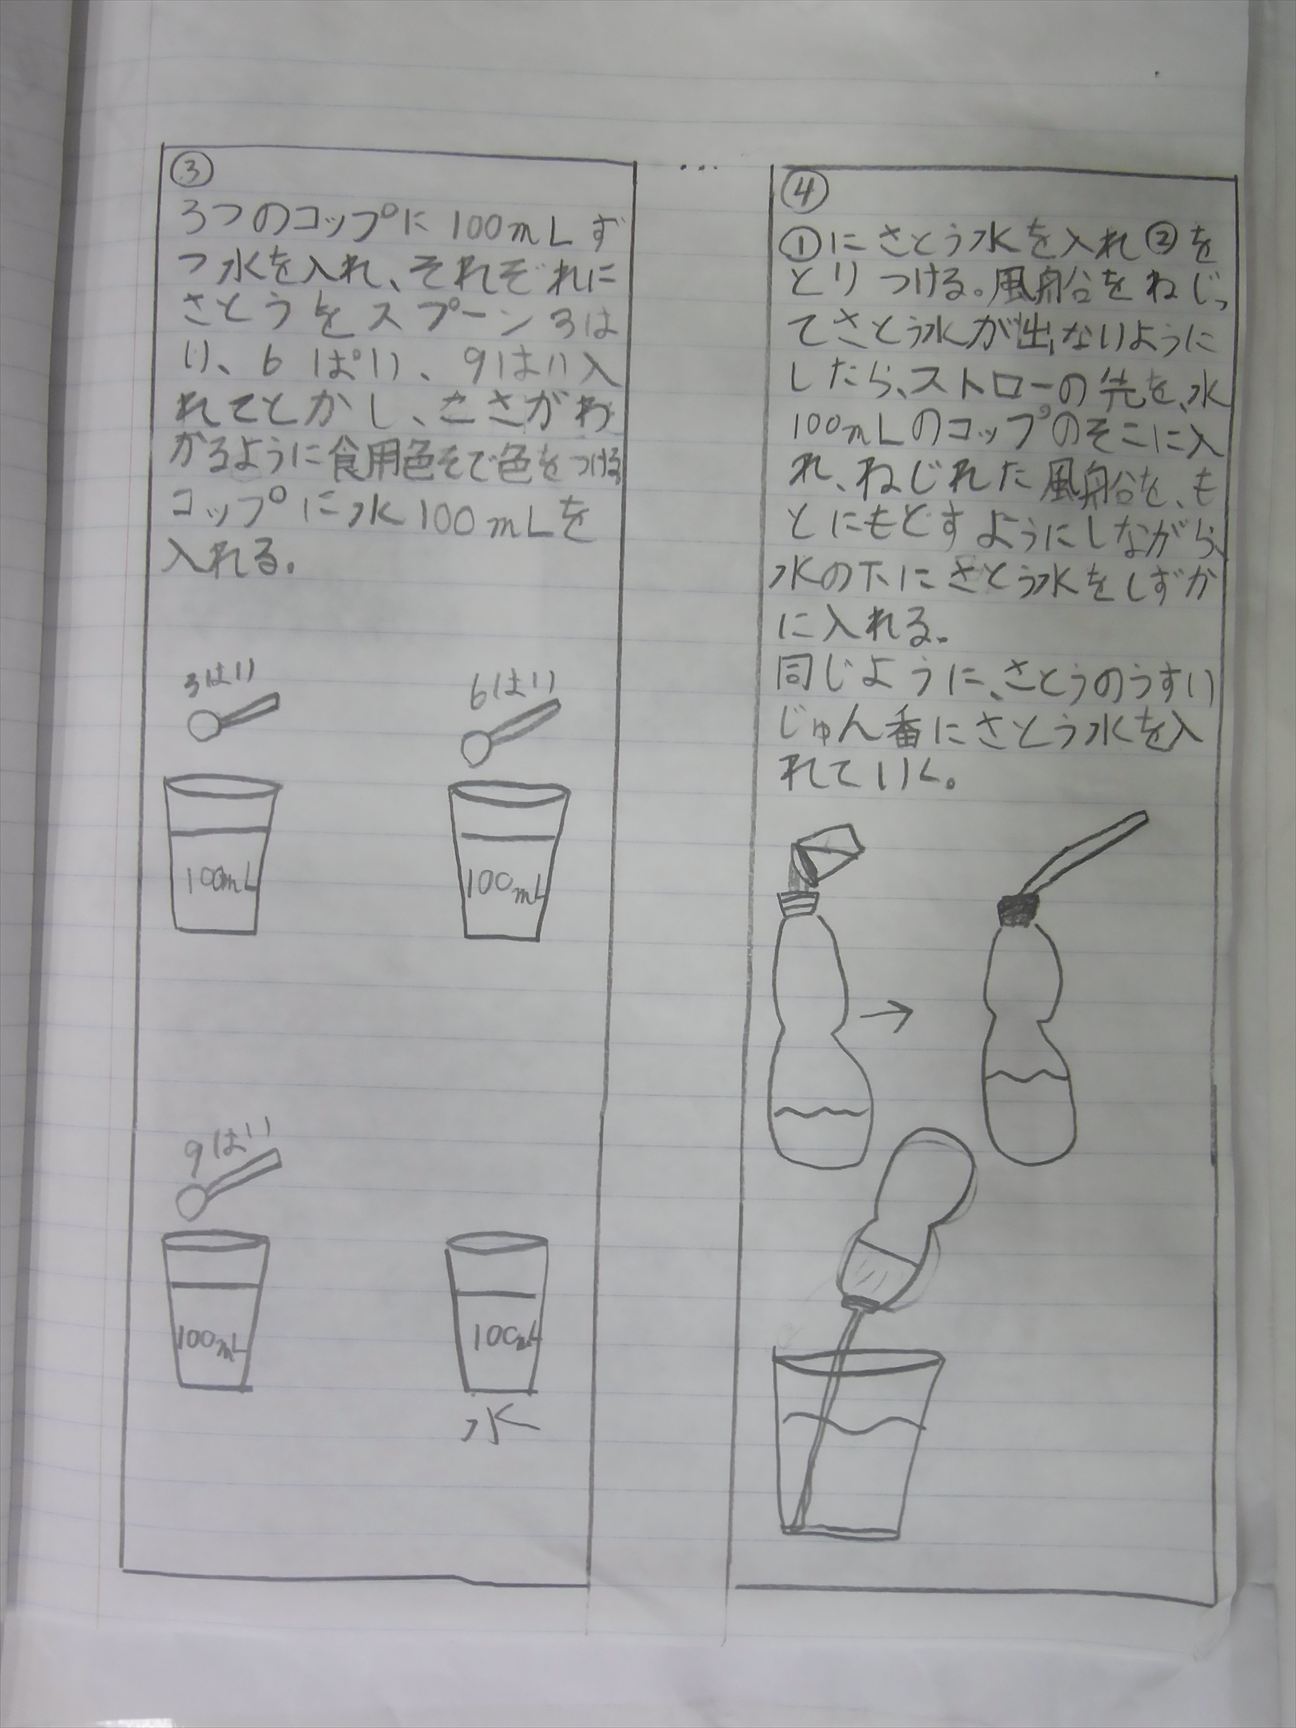 ③
3つのコップに100mLず
つ水を入れ、それぞれに
さとうをスプーン3は
い、6ぱい、9はい入
れてとかし、こさがわ
かるように食用色そで色をつける
コップに水100mLを
入れる。
3はい
6はい
100mL
100mL
9はい
100mL
100mL
水
...
④
①にさとう水を入れ②を
とりつける。風船をねじっ
てさとう水が出ないように
したら、ストローの先を、水
100mLのコップのそこに入
れ、ねじれた風船を、も
とにもどすようにしながら、
水の下にさとう水をしずか
に入れる。
同じように、さとうのうすい
じゅん番にさとう水を入
れていく。